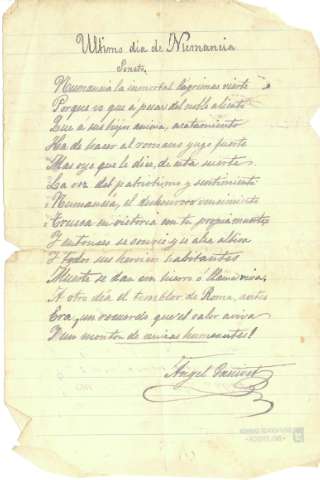 Ultimo dia de Numancia
Soneto
Numancia la inmortal lágrimas vierte
Porque vé que a pesar del noble aliento
Que á sus hijos anima, acatamiento
Ha de hacer al romano yugo fuerte
Mas oye que le dice, de esta suerte
La voz del patriotismo y sentimiento
Numancia, el deshonroso vencimiento
en victoria con tu propia muerte
Y entonces se y se alza altiva
Y todos sus heroicos habitantes
Muerte se dan con hierro ó llama viva;
A otro dia el temblor de Roma, antes
Era, un recuerdo que el valor aviva
Y un monton de ruinas humeantes!
Ángel Ganivet